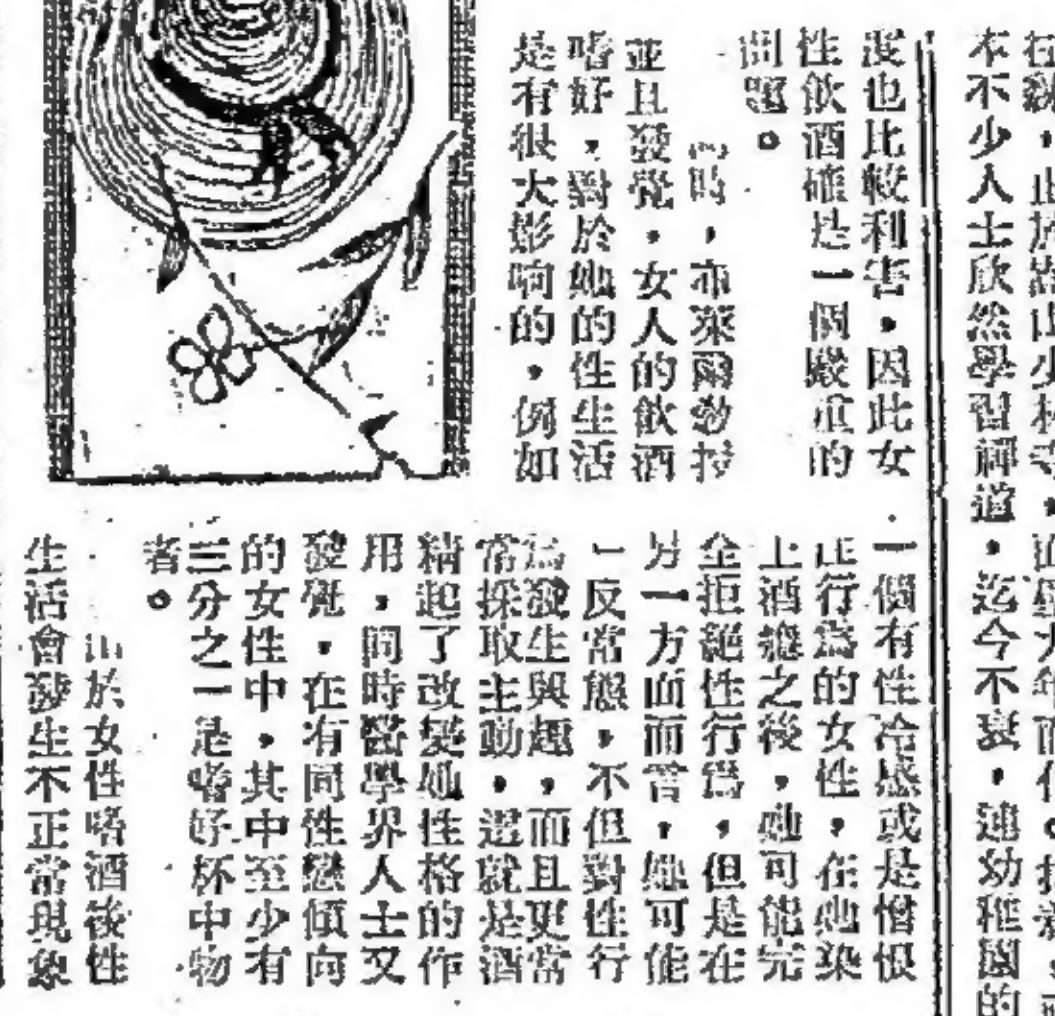 本不少人士欣然學習禪道，迄今不衰，連幼稚園的
度也比較利害，因此女
性飲酒確是一個嚴重的
問題。
同時，布萊爾勃
並且發覺，女人的飲酒
嗜好，對於她的性生活
是有很大影响的，例如
一個有性冷感或是憎恨
正行爲的女性，在她染
上酒癮之後，她可能完
全拒絕性行爲，但是在
另一方面而言，她可能
一反常態，不但對性行
爲發生興趣，而且更常
常採取主動，這就是酒
精起了改變她性格的作
用，同時醫學界人士又
發覺，在有同性戀傾向
的女性中，其中至少有
三分之一是嗜好杯中物
者。
由於女性嗜酒後性
生活會發生不正常現象